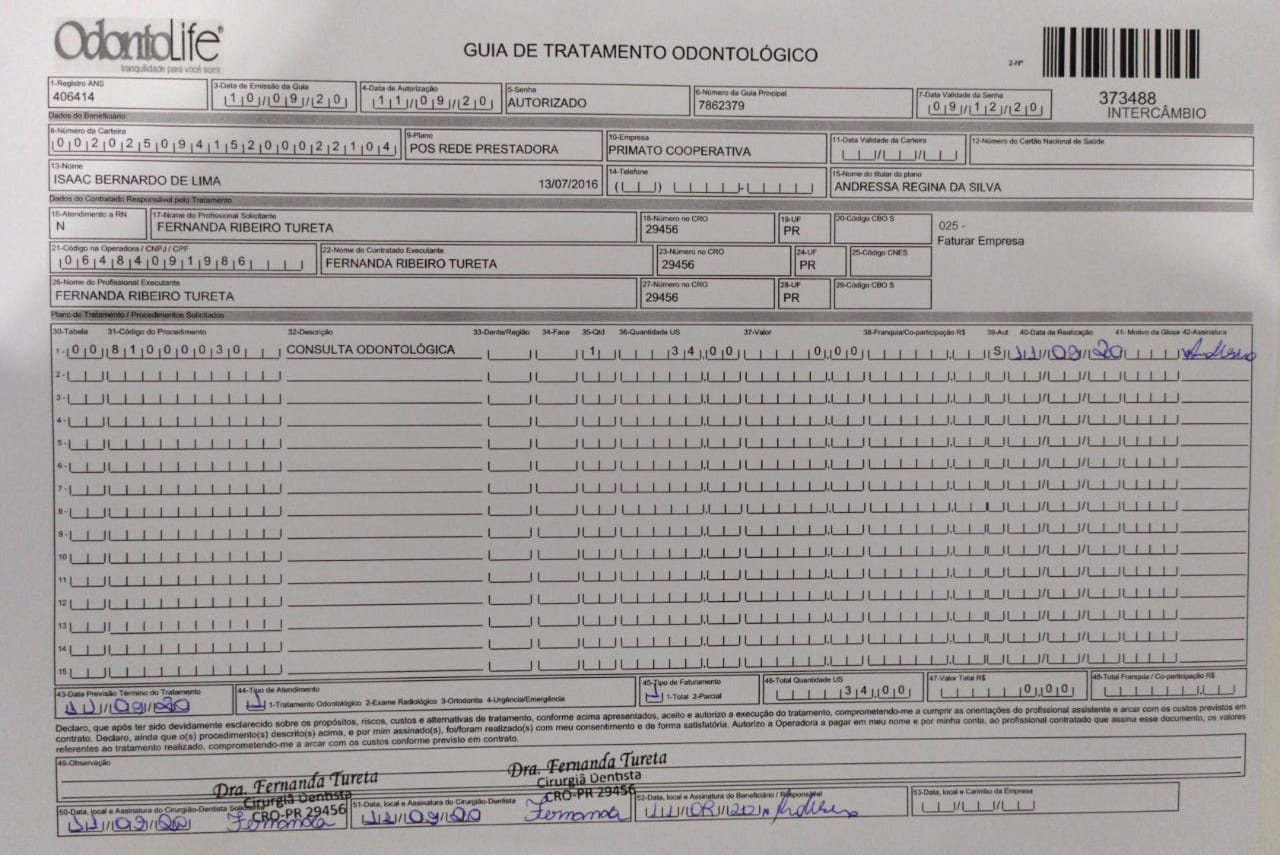 OdontoLife®
tranquilidade para você sorrir
GUIA DE TRATAMENTO ODONTOLÓGICO
2-Nº
373488
INTERCÂMBIO
1-Registro ANS
406414
3-Data de Emissão da Guia
10/09/20
4-Data de Autorização
11/09/20
5-Senha
AUTORIZADO
6-Número da Guia Principal
7862379
7-Data Validade da Senha
09/12/20
Dados do Beneficiário
8-Número da Carteira
00202509415200022104
9-Plano
POS REDE PRESTADORA
10-Empresa
PRIMATO COOPERATIVA
11-Data Validade da Carteira
12-Número do Cartão Nacional de Saúde
13-Nome
ISAAC BERNARDO DE LIMA 13/07/2016
14-Telefone
15-Nome do titular do plano
ANDRESSA REGINA DA SILVA
Dados do Contratado Responsável pelo Tratamento
16-Atendimento a RN
N
17-Nome do Profissional Solicitante
FERNANDA RIBEIRO TURETA
18-Número no CRO
29456
19-UF
PR
20-Código CBO S
025 -
Faturar Empresa
21-Código na Operadora / CNPJ / CPF
06484091986
22-Nome do Contratado Executante
FERNANDA RIBEIRO TURETA
23-Número no CRO
29456
24-UF
PR
25-Código CNES
26-Nome do Profissional Executante
FERNANDA RIBEIRO TURETA
27-Número no CRO
29456
28-UF
PR
29-Código CBO S
Plano de Tratamento / Procedimentos Solicitados
30-Tabela 31-Código do Procedimento 32-Descrição 33-Dente/Região 34-Face 35-Qtd 36-Quantidade US 37-Valor 38-Franquia/Co-participação R$ 39-Aut 40-Data da Realização 41- Motivo da Glosa 42-Assinatura
1- 00 81000030 CONSULTA ODONTOLÓGICA 1 34,00 0,00 S 11/09/20
2-
3-
4-
5-
6-
7-
8-
9-
10
11
12
13
14
15
43-Data Previsão Término do Tratamento
11/09/20
44-Tipo de Atendimento
1 1-Tratamento Odontológico 2-Exame Radiológico 3-Ortodontia 4-Urgência/Emergência
45-Tipo de Faturamento
1 1-Total 2-Parcial
46-Total Quantidade US
34,00
47-Valor Total R$
0,00
48-Total Franquia / Co-participação R$
Declaro, que após ter sido devidamente esclarecido sobre os propósitos, riscos, custos e alternativas de tratamento, conforme acima apresentados, aceito e autorizo a execução do tratamento, comprometendo-me a cumprir as orientações do profissional assistente e arcar com os custos previstos em
contrato. Declaro, ainda que o(s) procedimento(s) descrito(s) acima, e por mim assinado(s), foi/foram realizado(s) com meu consentimento e de forma satisfatória. Autorizo a Operadora a pagar em meu nome e por minha conta, ao profissional contratado que assina esse documento, os valores
referentes ao tratamento realizado, comprometendo-me a arcar com os custos conforme previsto em contrato.
49-Observação
Dra. Fernanda Tureta
Cirurgiã Dentista
CRO-PR 29456
Dra. Fernanda Tureta
Cirurgiã Dentista
CRO-PR 29456
50-Data, local e Assinatura do Cirurgião-Dentista Solicitante
11/09/20 Fernanda
51-Data, local e Assinatura do Cirurgião-Dentista
11/09/20 Fernanda
52-Data, local e Assinatura do Beneficiário / Responsável
11/09/20
53-Data, local e Carimbo da Empresa